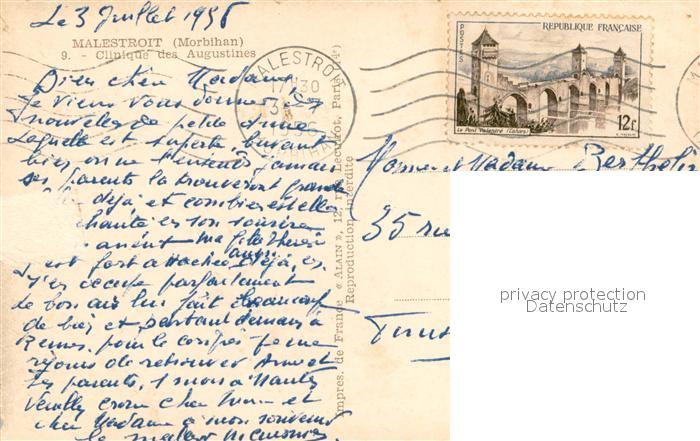 Le 3 Juillet 1956
MALESTROIT (Morbihan)
9. - Clinique des Augustines
Bien chère Madame,
Je viens vous donner des
nouvelles de petite Anne
Laquelle est superbe, buvant
bien, on ne l'entend jamais
ses parents la trouveront grande
déjà, et combien est-elle
son sourire
ma fille Thérèse
est fort attachée déjà, et
s'en occupe parfaitement
de bon air lui fait beaucoup
de bien et partant demain à
Rennes, pour le congrès je me
réjouis de retrouver Anne et
ses parents, à Nantes
Veuillez croire cher Monsieur et
chère Madame à mon souvenir
le meilleur
MALESTROIT
17 30
3 - 7
MORBIHAN
POSTES
REPUBLIQUE FRANÇAISE
Le Pont Valentré (Cahors)
12f
Impres. de France « ALAIN », 12, rue Paris (4e)
Reproduction interdite
Monsieur et Madame Berthelin
35 rue
privacy protection
Datenschutz